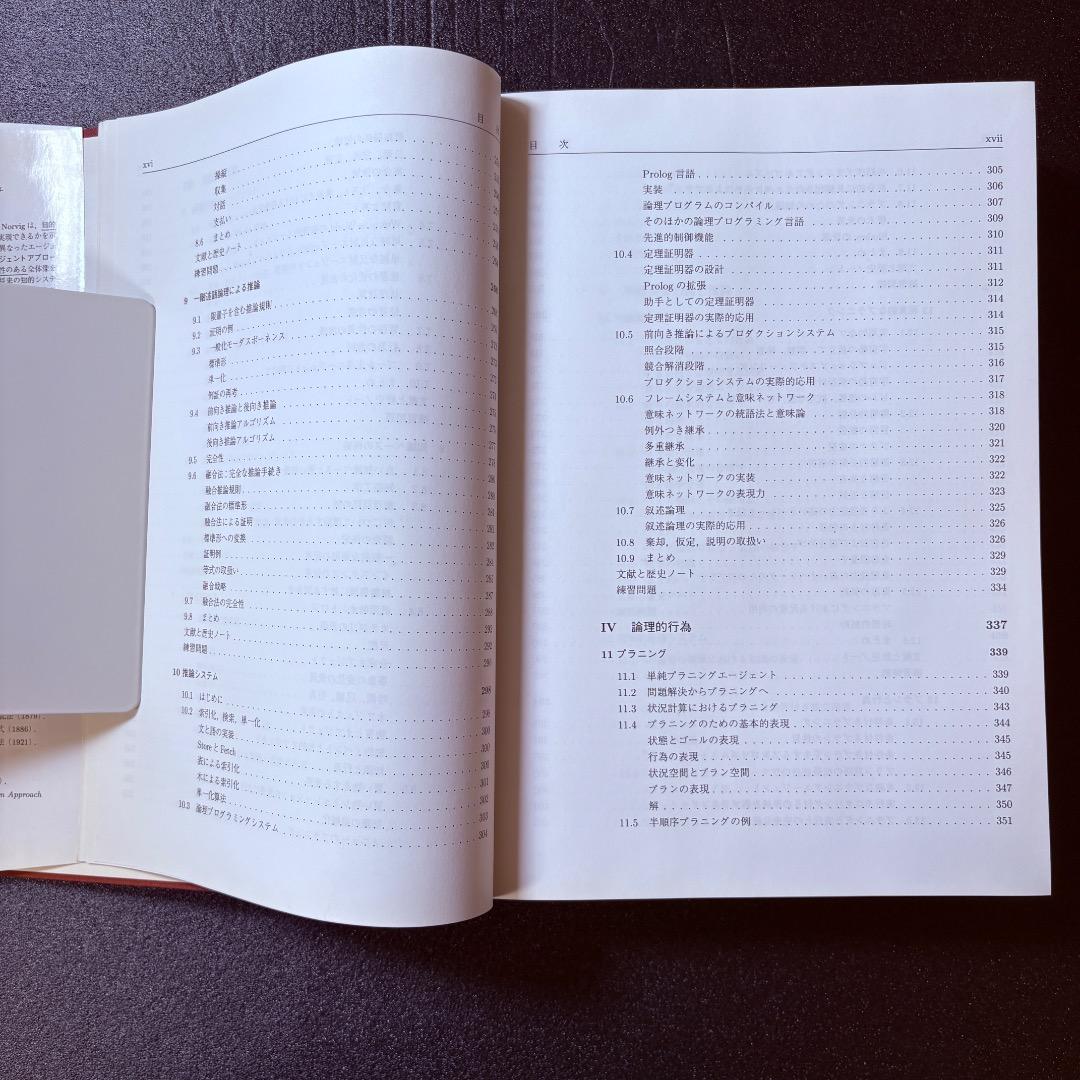 Norvig は，知的
実現できるかを示
異なったエージェ
性のある全体像を
式（1886）．
法（1921）．
n Approach
xvi
目
操縦
収集
対話
支払い
8.6 まとめ
文献と歴史ノート
練習問題
9 一階述語論理による推論
9.1 限量子を含む推論規則
9.2 証明の例
9.3 一般化モーダスポーネンス
標準形
単一化
例証の再考
9.4 前向き推論と後向き推論
前向き推論アルゴリズム
後向き推論アルゴリズム
9.5 完全性
9.6 融合法：完全な推論手続き
融合推論規則
融合法の標準形
融合法による証明
標準形への変換
証明例
等式の取扱い
融合戦略
9.7 融合法の完全性
9.8 まとめ
文献と歴史ノート
練習問題
10 推論システム 298
10.1 はじめに 298
10.2 索引化，検索，単一化 299
文と語の実装 300
Store と Fetch 300
表による索引化 300
木による索引化 301
単一化算法 302
10.3 論理プログラミングシステム 304
目 次
xvii
Prolog 言語 305
実装 306
論理プログラムのコンパイル 307
そのほかの論理プログラミング言語 309
先進的制御機能 310
10.4 定理証明器 311
定理証明器の設計 311
Prolog の拡張 312
助手としての定理証明器 314
定理証明器の実際的応用 314
10.5 前向き推論によるプロダクションシステム 315
照合段階 315
競合解消段階 316
プロダクションシステムの実際的応用 317
10.6 フレームシステムと意味ネットワーク 318
意味ネットワークの統語法と意味論 318
例外つき継承 320
多重継承 321
継承と変化 322
意味ネットワークの実装 322
意味ネットワークの表現力 323
10.7 叙述論理 325
叙述論理の実際的応用 326
10.8 棄却，仮定，説明の取扱い 326
10.9 まとめ 329
文献と歴史ノート 329
練習問題 334
IV 論理的行為 337
11 プラニング 339
11.1 単純プラニングエージェント 339
11.2 問題解決からプラニングへ 340
11.3 状況計算におけるプラニング 343
11.4 プラニングのための基本的表現 344
状態とゴールの表現 345
行為の表現 345
状況空間とプラン空間 346
プランの表現 347
解 350
11.5 半順序プラニングの例 351